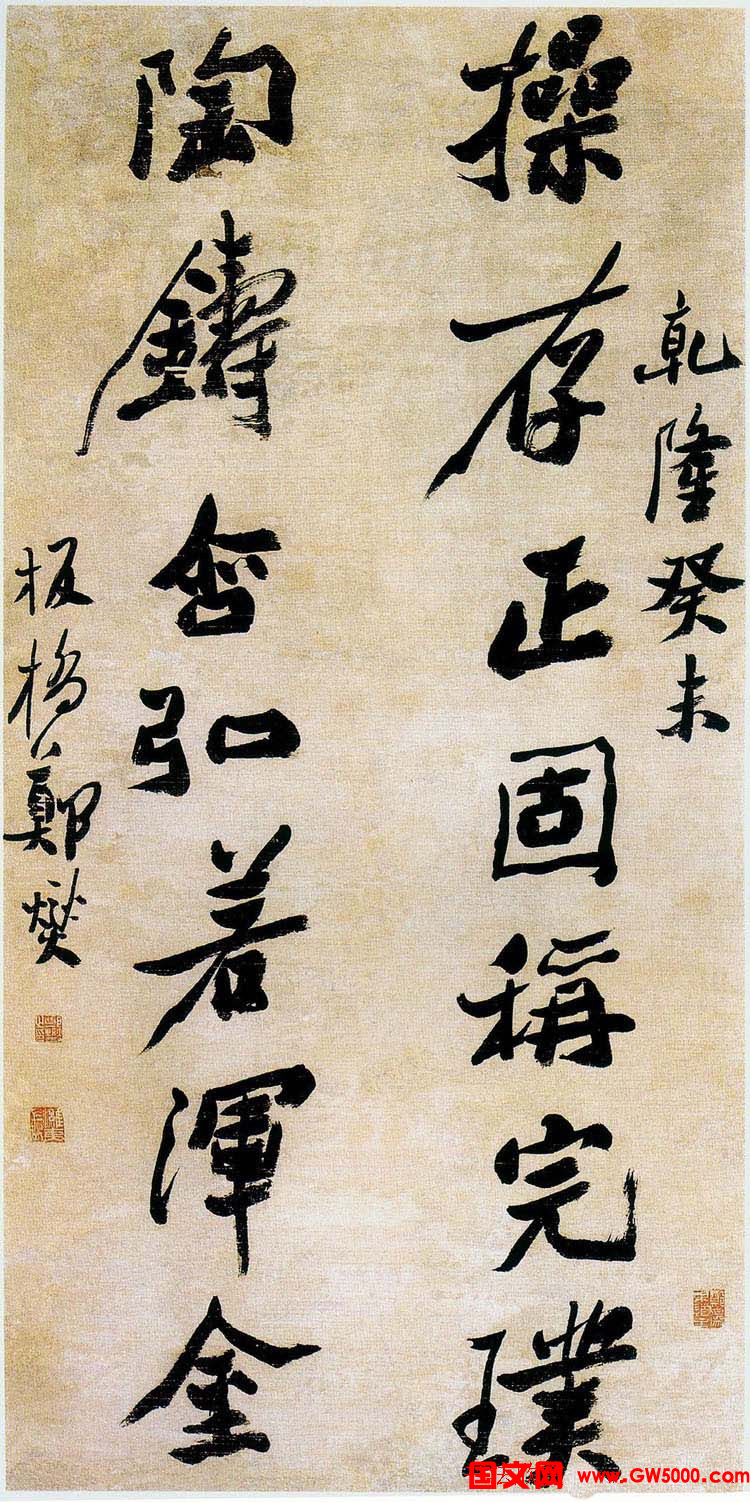 乾隆癸未
操存正固稱完璞
陶鑄含弘若渾金
板橋鄭燮
国文网 www.GW5000.com